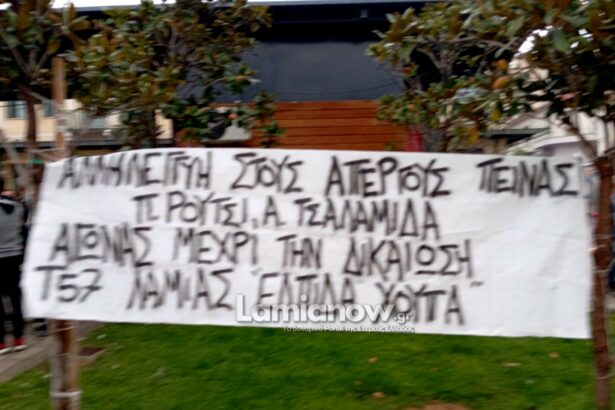 ΑΛΛΗΛΕΓΓΥΗ ΣΤΟΥΣ ΑΠΕΡΓΟΥΣ ΠΕΙΝΑΣ
Π. ΡΟΥΤΣΙ, Α. ΤΣΑΛΑΜΙΔΑ
ΑΓΩΝΑΣ ΜΕΧΡΙ ΤΗΝ ΔΙΚΑΙΩΣΗ
Τ57 ΛΑΜΙΑΣ "ΕΛΠΙΔΑ ΧΟΥΠΑ"
Lamianow.gr